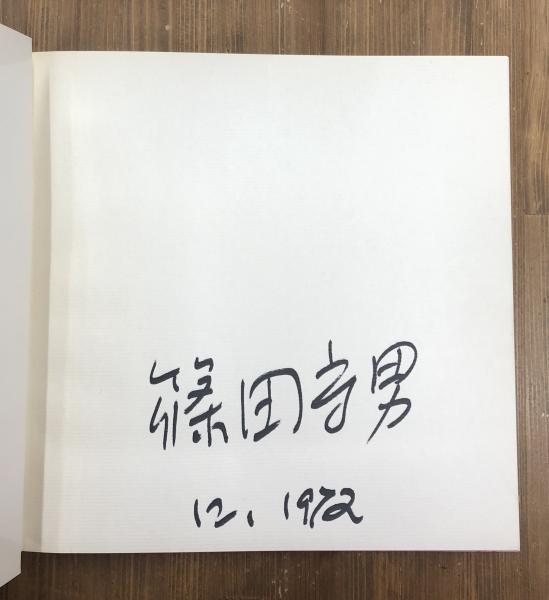 篠田守男
12, 1972